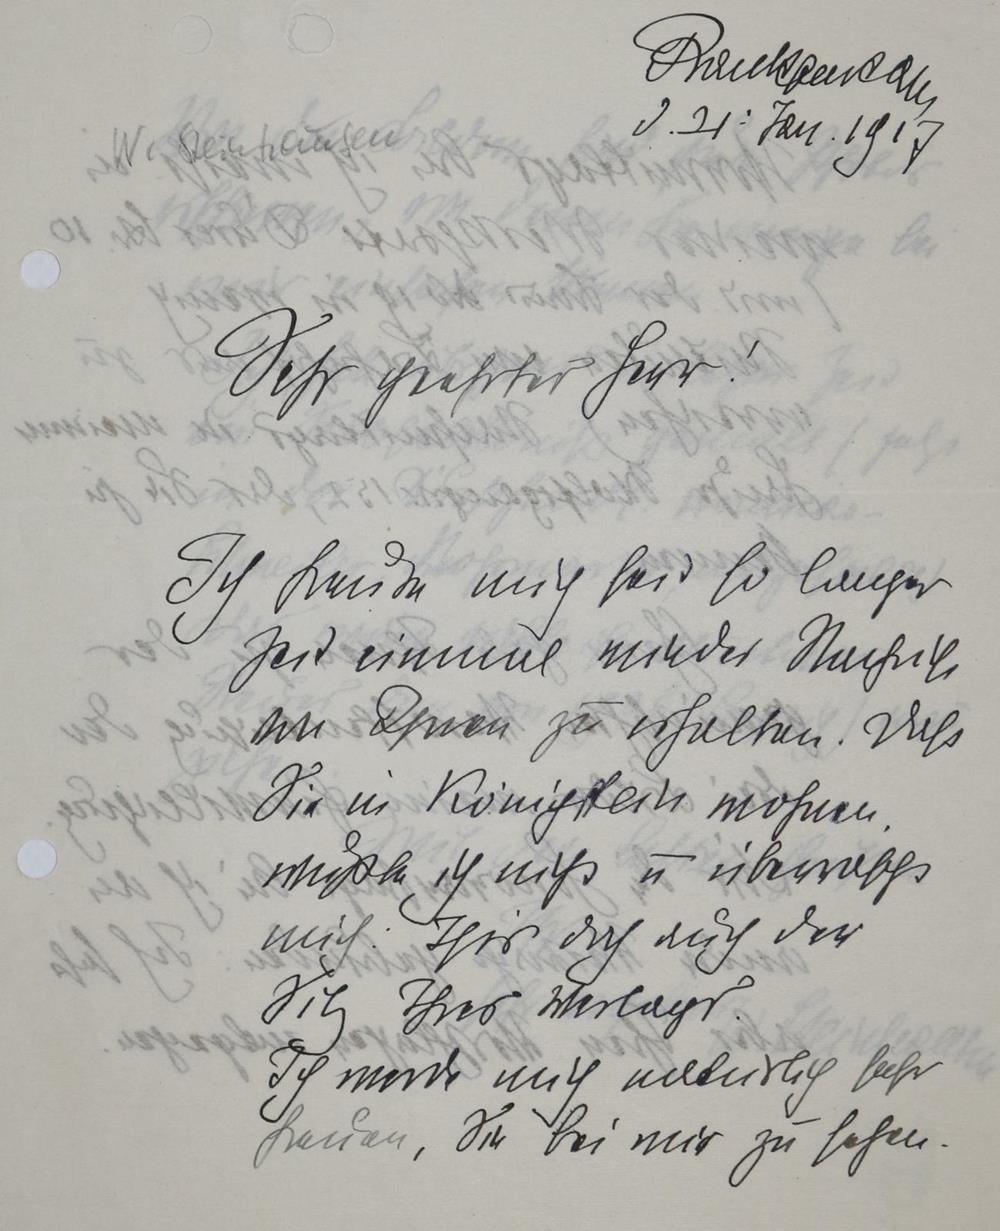 Frankfurt a/M
d. 21. Jan. 1917
W. Steinhausen
Sehr geehrter Herr!
Ich freute mich seit so langer
Zeit einmal wieder Nachricht
von Ihnen zu erhalten. Daß
Sie in Königstein wohnen,
wußte ich nicht u überrascht
mich. Ist doch auch der
Sitz Ihres Verlags.
Ich werde mich natürlich sehr
freuen, Sie bei mir zu sehen.